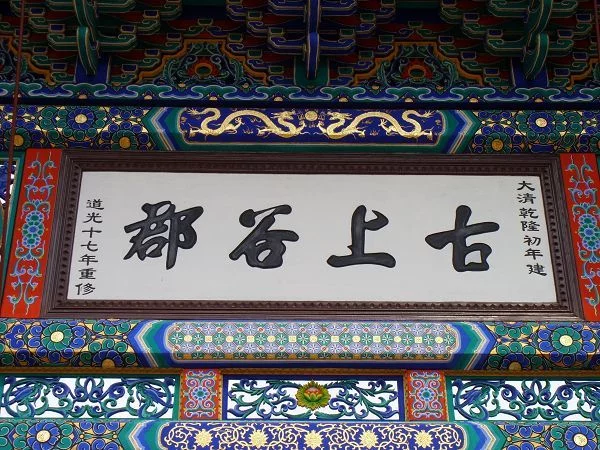 大清乾隆初年建
古上谷郡
道光十七年重修